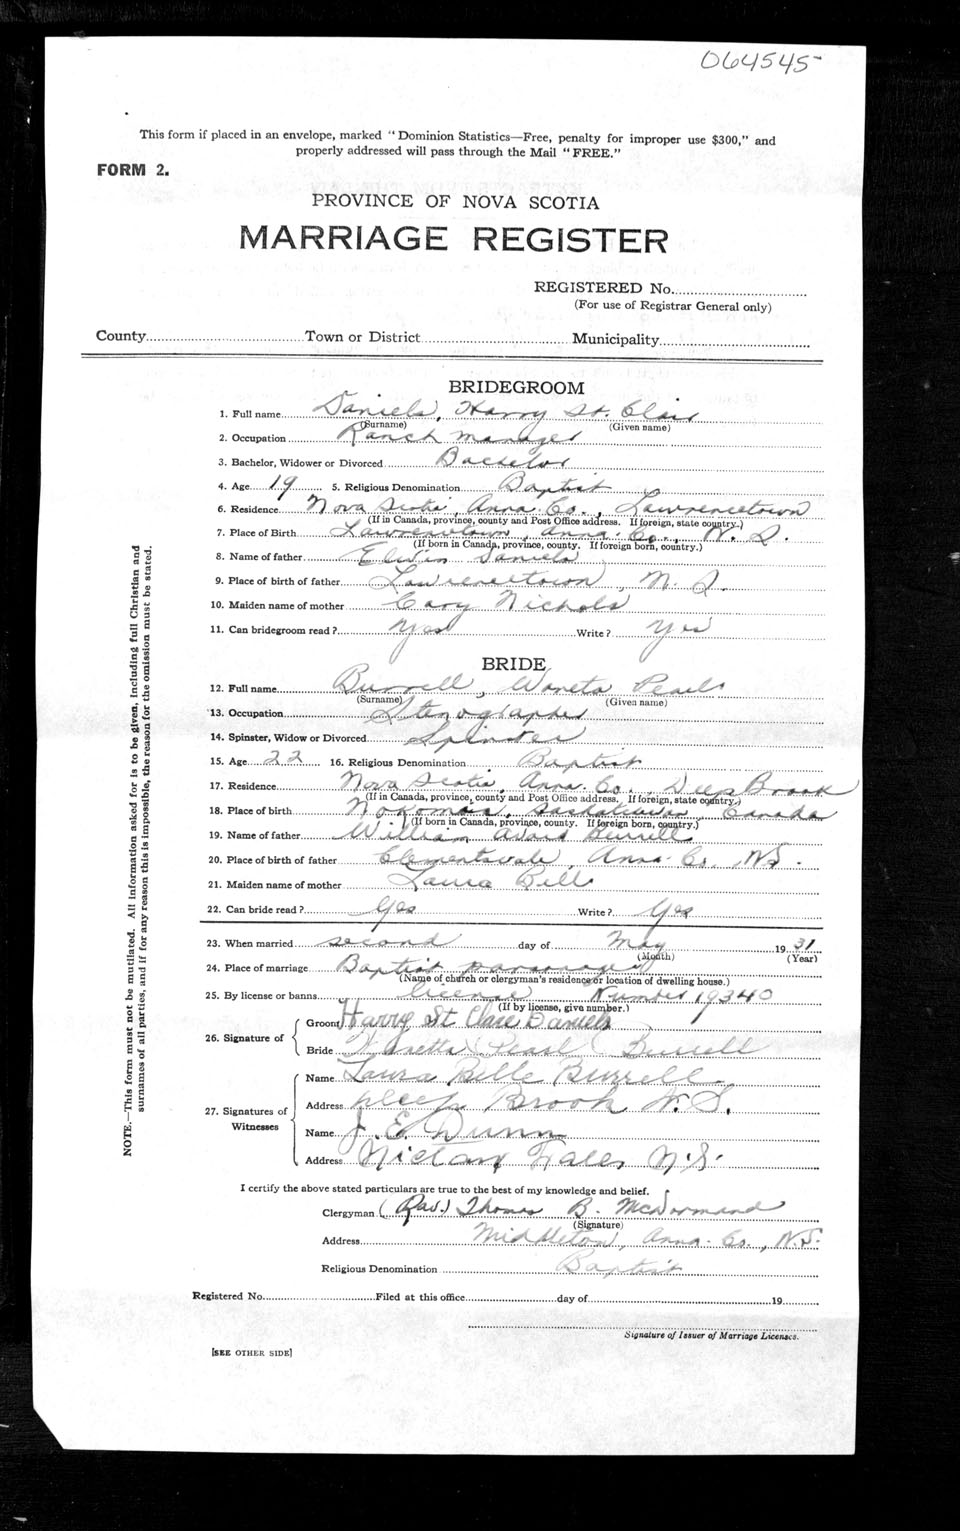 064545
This form if placed in an envelope, marked "Dominion Statistics—Free, penalty for improper use $300," and
properly addressed will pass through the Mail "FREE."
FORM 2.
PROVINCE OF NOVA SCOTIA
MARRIAGE REGISTER
REGISTERED No.
(For use of Registrar General only)
County Town or District Municipality
BRIDEGROOM
1. Full name Daniels, Harry St. Clair
(Surname) (Given name)
2. Occupation Ranch Manager
3. Bachelor, Widower or Divorced Bachelor
4. Age 19 5. Religious Denomination Baptist
6. Residence Nova Scotia, Anna. Co., Lawrencetown
(If in Canada, province, county and Post Office address. If foreign, state country.)
7. Place of Birth Lawrencetown, Anna. Co., N. S.
(If born in Canada, province, county. If foreign born, country.)
8. Name of father Elwin Daniels
9. Place of birth of father Lawrencetown, N. S.
10. Maiden name of mother Cary Nichols
11. Can bridegroom read? Yes Write? Yes
BRIDE
12. Full name Burrell, Waneta Pearl
(Surname) (Given name)
13. Occupation Stenographer
14. Spinster, Widow or Divorced Spinster
15. Age 22 16. Religious Denomination Baptist
17. Residence Nova Scotia, Anna. Co., Deep Brook
(If in Canada, province, county and Post Office address. If foreign, state country.)
18. Place of birth Canada
(If born in Canada, province, county. If foreign born, country.)
19. Name of father William Avard Burrell
20. Place of birth of father Clementsvale, Anna. Co., N.S.
21. Maiden name of mother Laura Bell
22. Can bride read? Yes Write? Yes
23. When married second day of May 1931
(Month) (Year)
24. Place of marriage Baptist parsonage
(Name of church or clergyman's residence or location of dwelling house.)
25. By license or banns license Number 19340
(If by license, give number.)
26. Signature of
Groom Harry St Clare Daniels
Bride Pearl Burrell
27. Signatures of Witnesses
Name Laura Belle Burrell
Address Deep Brook N.S.
Name J. E. Dunn
Address Nictaux Falls N.S.
I certify the above stated particulars are true to the best of my knowledge and belief.
Clergyman (Rev.) Thomas B. McDormand
(Signature)
Address Middleton, Anna. Co., N.S.
Religious Denomination Baptist
Registered No. Filed at this office day of 19
Signature of Issuer of Marriage Licenses.
[SEE OTHER SIDE]
NOTE.—This form must not be mutilated. All information asked for is to be given, including full Christian and
surnames of all parties, and if for any reason this is impossible, the reason for the omission must be stated.